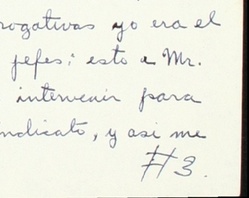 rogativas yo era el
jefes; esto a Mr.
intervenir para
indicato, y asi me
#3.